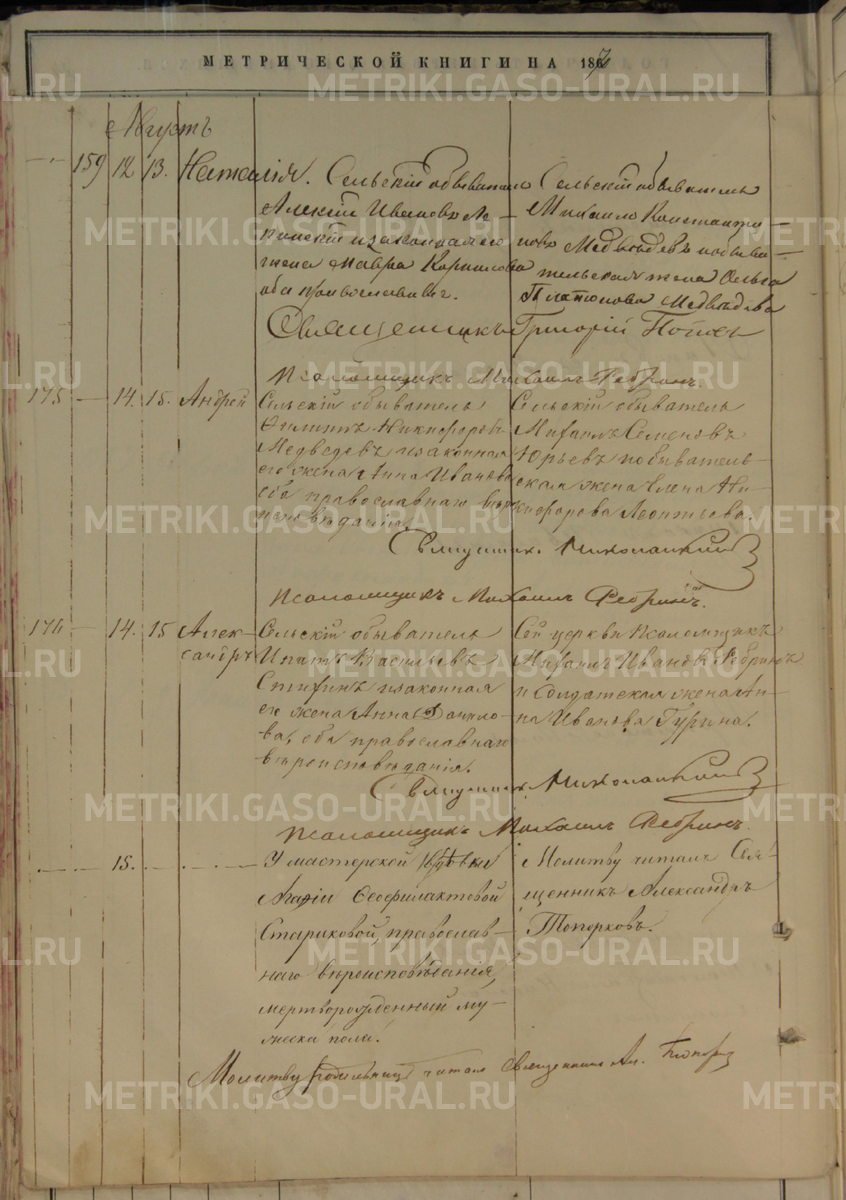 МЕТРИЧЕСКОЙ КНИГИ НА 1867
Августъ
159 12 13. Наталія. Сельскій обыватель
Алексій Ивановъ
и законная его
жена Мавра Корнилова
оба православные.
Сельскій обыватель
Михаило Константи-
новъ Медведевъ и обыва-
тельская жена Ольга
Платонова Медведева
Священникъ Григорій Поповъ
Псаломщикъ Михаилъ Ребринъ.
175 14. 15. Андрей
Сельскій обыватель
Филиппъ Никифоровъ
Медведевъ и законная
его жена Анна Иванова
оба православнаго вѣро-
исповѣданія.
Сельскій обыватель
Михаилъ Семеновъ
Юрьевъ и обыватель-
ская жена Елена Ни-
кифорова Леонтьева.
Священник.
Псаломщикъ Михаилъ Ребринъ.
176 14. 15 Алек-
сандръ
Сельскій обыватель
Ипатъ Васильевъ
и законная
его жена Анна Данило-
ва, оба православнаго
вѣроисповѣданія.
Сей церкви Псаломщикъ
Михаилъ Ивановъ Ребринъ
и Солдатская жена Ан-
на Иванова Гурина.
Священник.
Псаломщикъ Михаилъ Ребринъ.
15.
У мастерской вдовы
Агафіи Феофилактовой
Стариковой, православ-
наго вѣроисповѣданія,
мертворожденный му-
жеска пола.
Молитву читалъ Свя-
щенникъ Александръ
Топорковъ.
Молитву родильницѣ читалъ Священникъ Ал. Топорк
METRIKI.GASO-URAL.RU